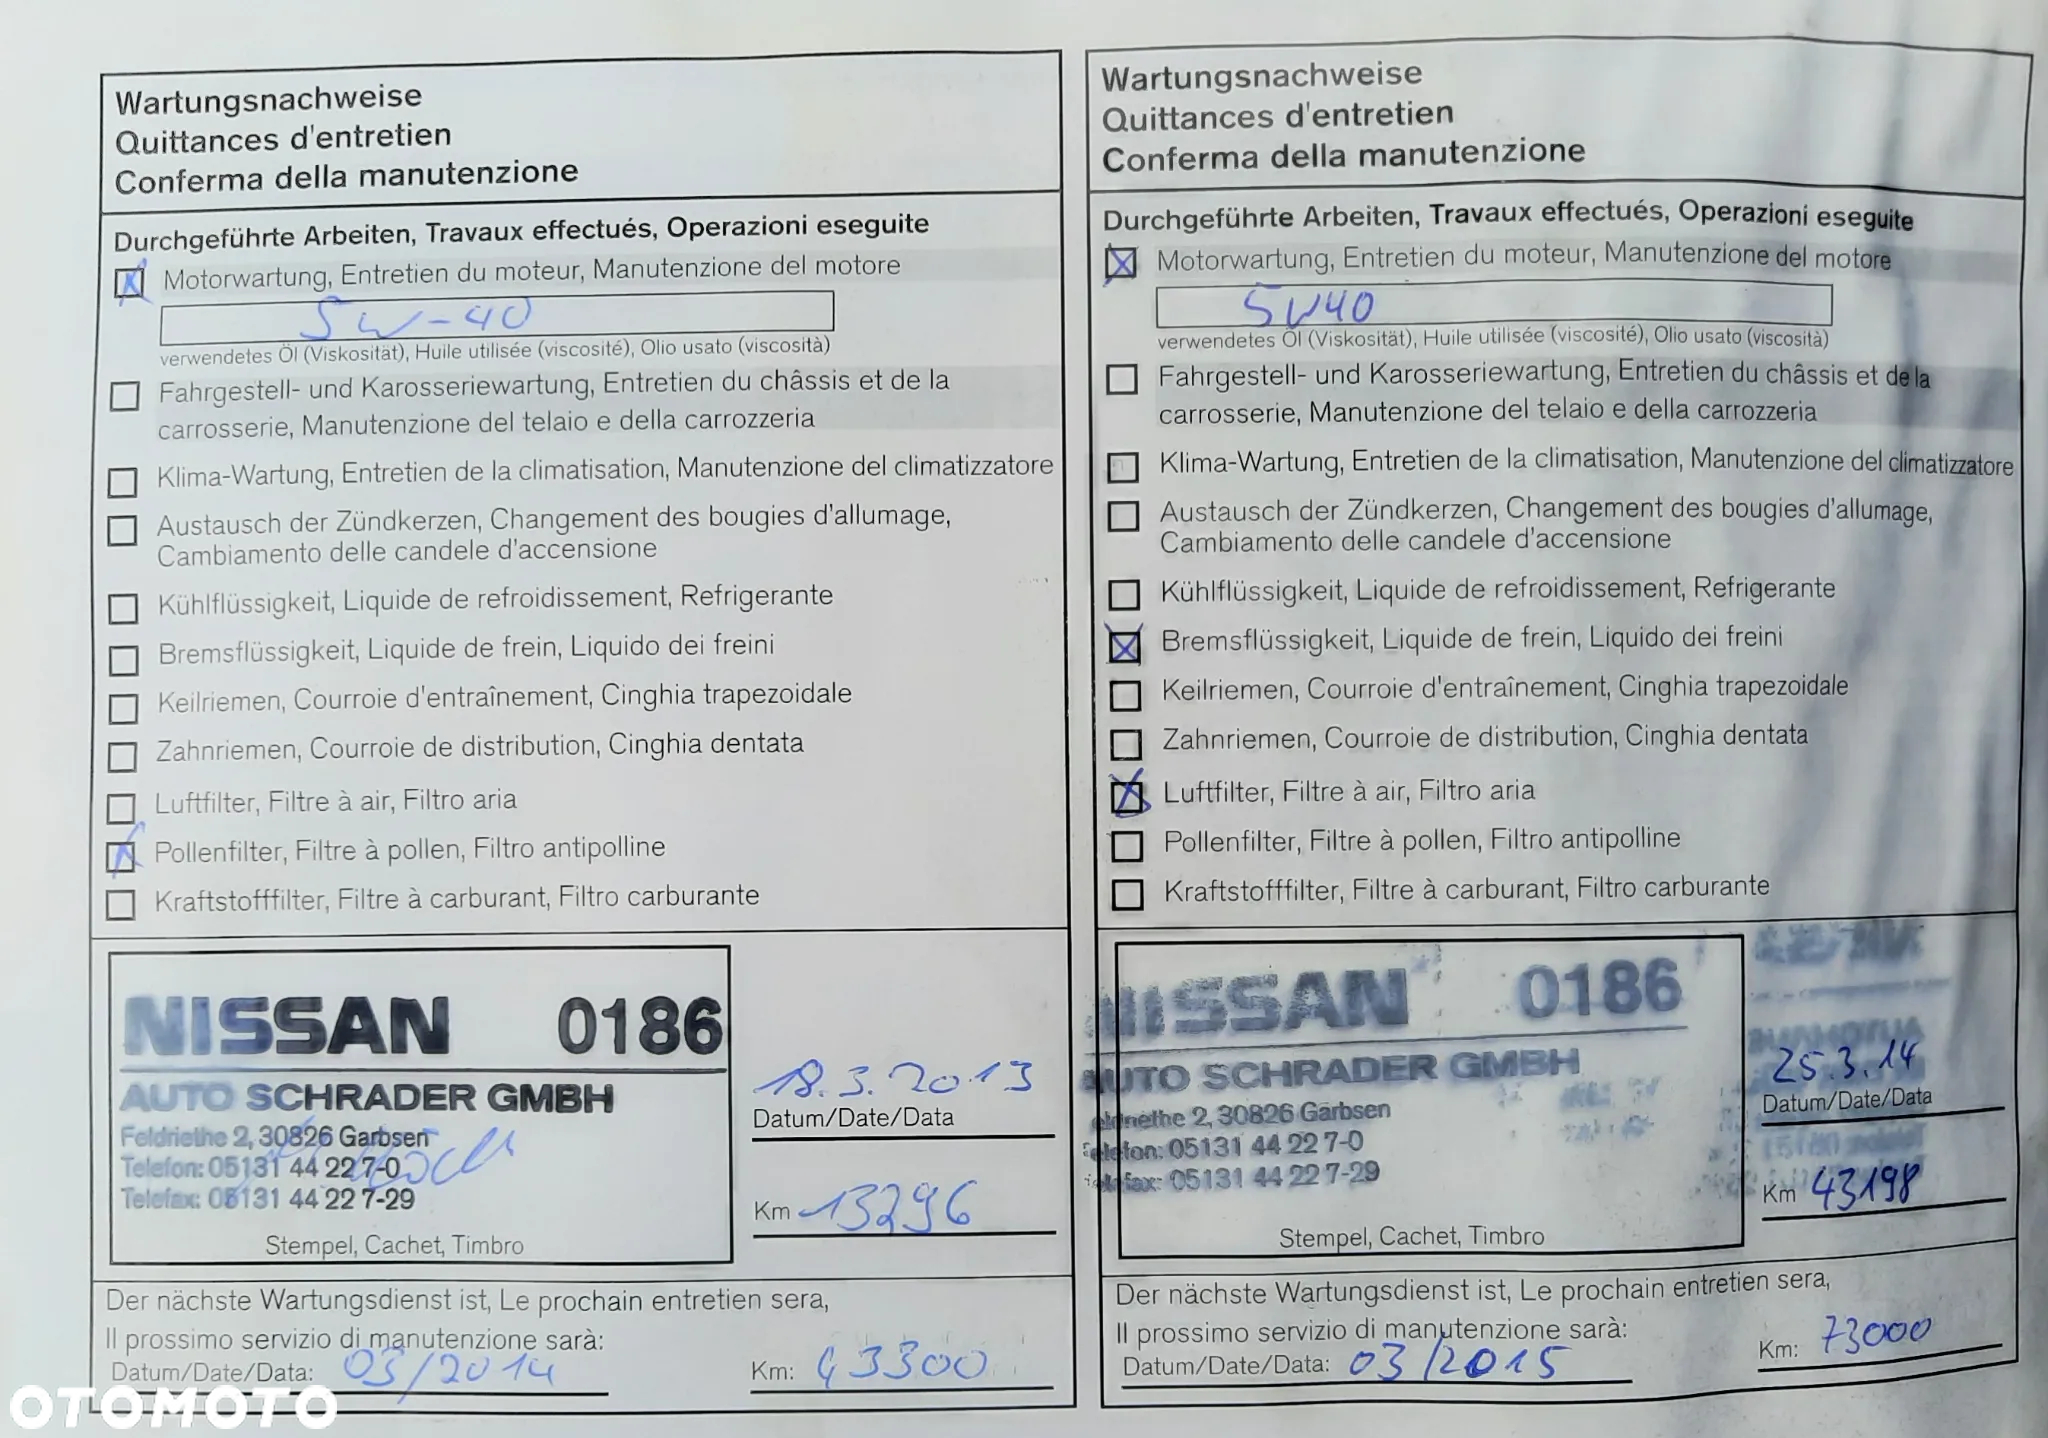 Wartungsnachweise
Quittances d'entretien
Conferma della manutenzione
Durchgeführte Arbeiten, Travaux effectués, Operazioni eseguite
Motorwartung, Entretien du moteur, Manutenzione del motore
5W-40
verwendetes Öl (Viskosität), Huile utilisée (viscosité), Olio usato (viscosità)
Fahrgestell- und Karosseriewartung, Entretien du châssis et de la
carrosserie, Manutenzione del telaio e della carrozzeria
Klima-Wartung, Entretien de la climatisation, Manutenzione del climatizzatore
Austausch der Zündkerzen, Changement des bougies d'allumage,
Cambiamento delle candele d'accensione
Kühlflüssigkeit, Liquide de refroidissement, Refrigerante
Bremsflüssigkeit, Liquide de frein, Liquido dei freini
Keilriemen, Courroie d'entraînement, Cinghia trapezoidale
Zahnriemen, Courroie de distribution, Cinghia dentata
Luftfilter, Filtre à air, Filtro aria
Pollenfilter, Filtre à pollen, Filtro antipolline
Kraftstofffilter, Filtre à carburant, Filtro carburante
NISSAN 0186
AUTO SCHRADER GMBH
Feldriethe 2, 30826 Garbsen
Telefon: 05131 44 22 7-0
Telefax: 05131 44 22 7-29
Stempel, Cachet, Timbro
18.3.2013
Datum/Date/Data
Km 13296
Der nächste Wartungsdienst ist, Le prochain entretien sera,
Il prossimo servizio di manutenzione sarà:
Datum/Date/Data: 03/2014 Km: 43300
Wartungsnachweise
Quittances d'entretien
Conferma della manutenzione
Durchgeführte Arbeiten, Travaux effectués, Operazioni eseguite
Motorwartung, Entretien du moteur, Manutenzione del motore
5W40
verwendetes Öl (Viskosität), Huile utilisée (viscosité), Olio usato (viscosità)
Fahrgestell- und Karosseriewartung, Entretien du châssis et de la
carrosserie, Manutenzione del telaio e della carrozzeria
Klima-Wartung, Entretien de la climatisation, Manutenzione del climatizzatore
Austausch der Zündkerzen, Changement des bougies d'allumage,
Cambiamento delle candele d'accensione
Kühlflüssigkeit, Liquide de refroidissement, Refrigerante
Bremsflüssigkeit, Liquide de frein, Liquido dei freini
Keilriemen, Courroie d'entraînement, Cinghia trapezoidale
Zahnriemen, Courroie de distribution, Cinghia dentata
Luftfilter, Filtre à air, Filtro aria
Pollenfilter, Filtre à pollen, Filtro antipolline
Kraftstofffilter, Filtre à carburant, Filtro carburante
NISSAN 0186
AUTO SCHRADER GMBH
Feldriethe 2, 30826 Garbsen
Telefon: 05131 44 22 7-0
Telefax: 05131 44 22 7-29
Stempel, Cachet, Timbro
25.3.14
Datum/Date/Data
Km 43198
Der nächste Wartungsdienst ist, Le prochain entretien sera,
Il prossimo servizio di manutenzione sarà:
Datum/Date/Data: 03/2015 Km: 73000
OTOMOTO